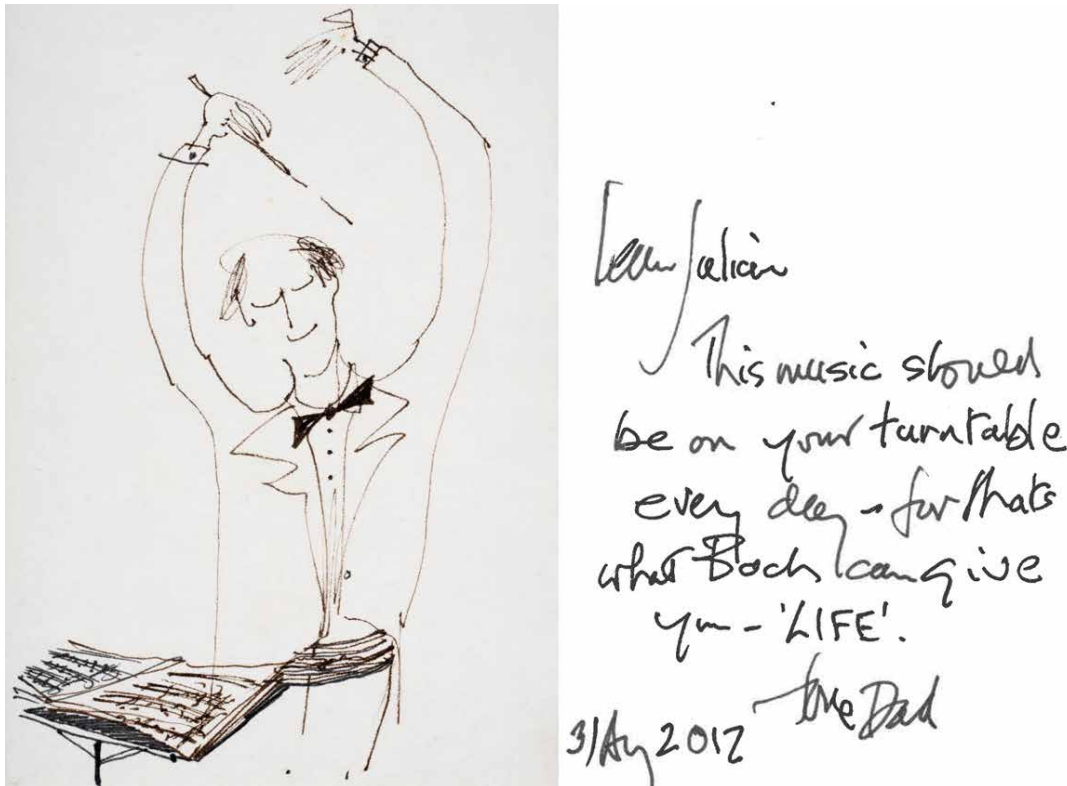 Dear Julian
This music should
be on your turntable
every day - for thats
what Bach can give
you - 'LIFE'.
Love Dad
3/Aug 2012